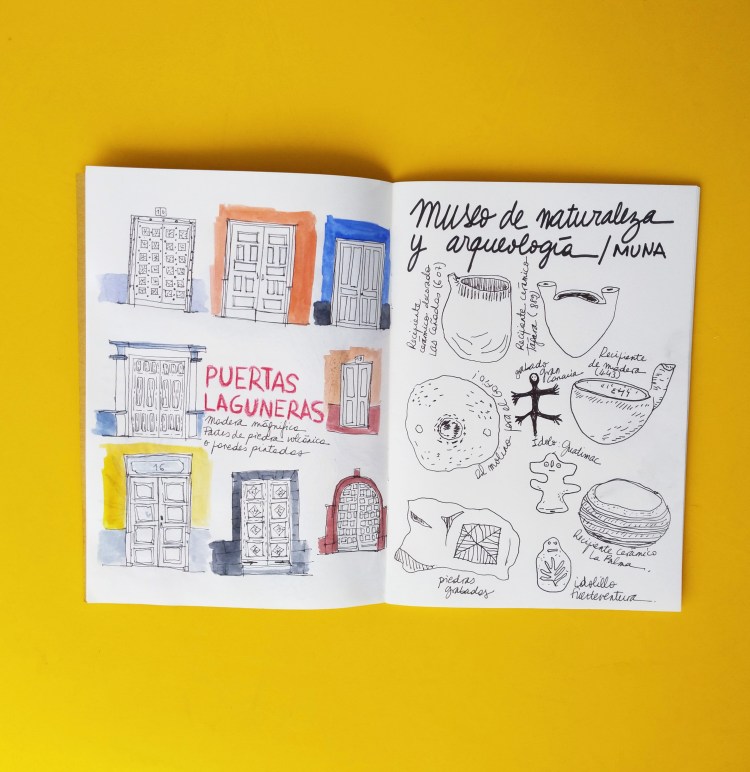 16
PUERTAS
LAGUNERAS
Madera magnífica
Partes de piedra volcánica
o paredes pintadas
16
Museo de naturaleza
y arqueología / MUNA
Recipiente
cerámico decorado
Las Cañadas (607)
Recipiente cerámico
Tejera (819)
Recipiente
de madera
(643)
644
grabado
gran
canaria
de molino
Idolo Guatimac
Recipiente cerámico
La Palma.
piedras
grabados
idolillo
fuerteventura.